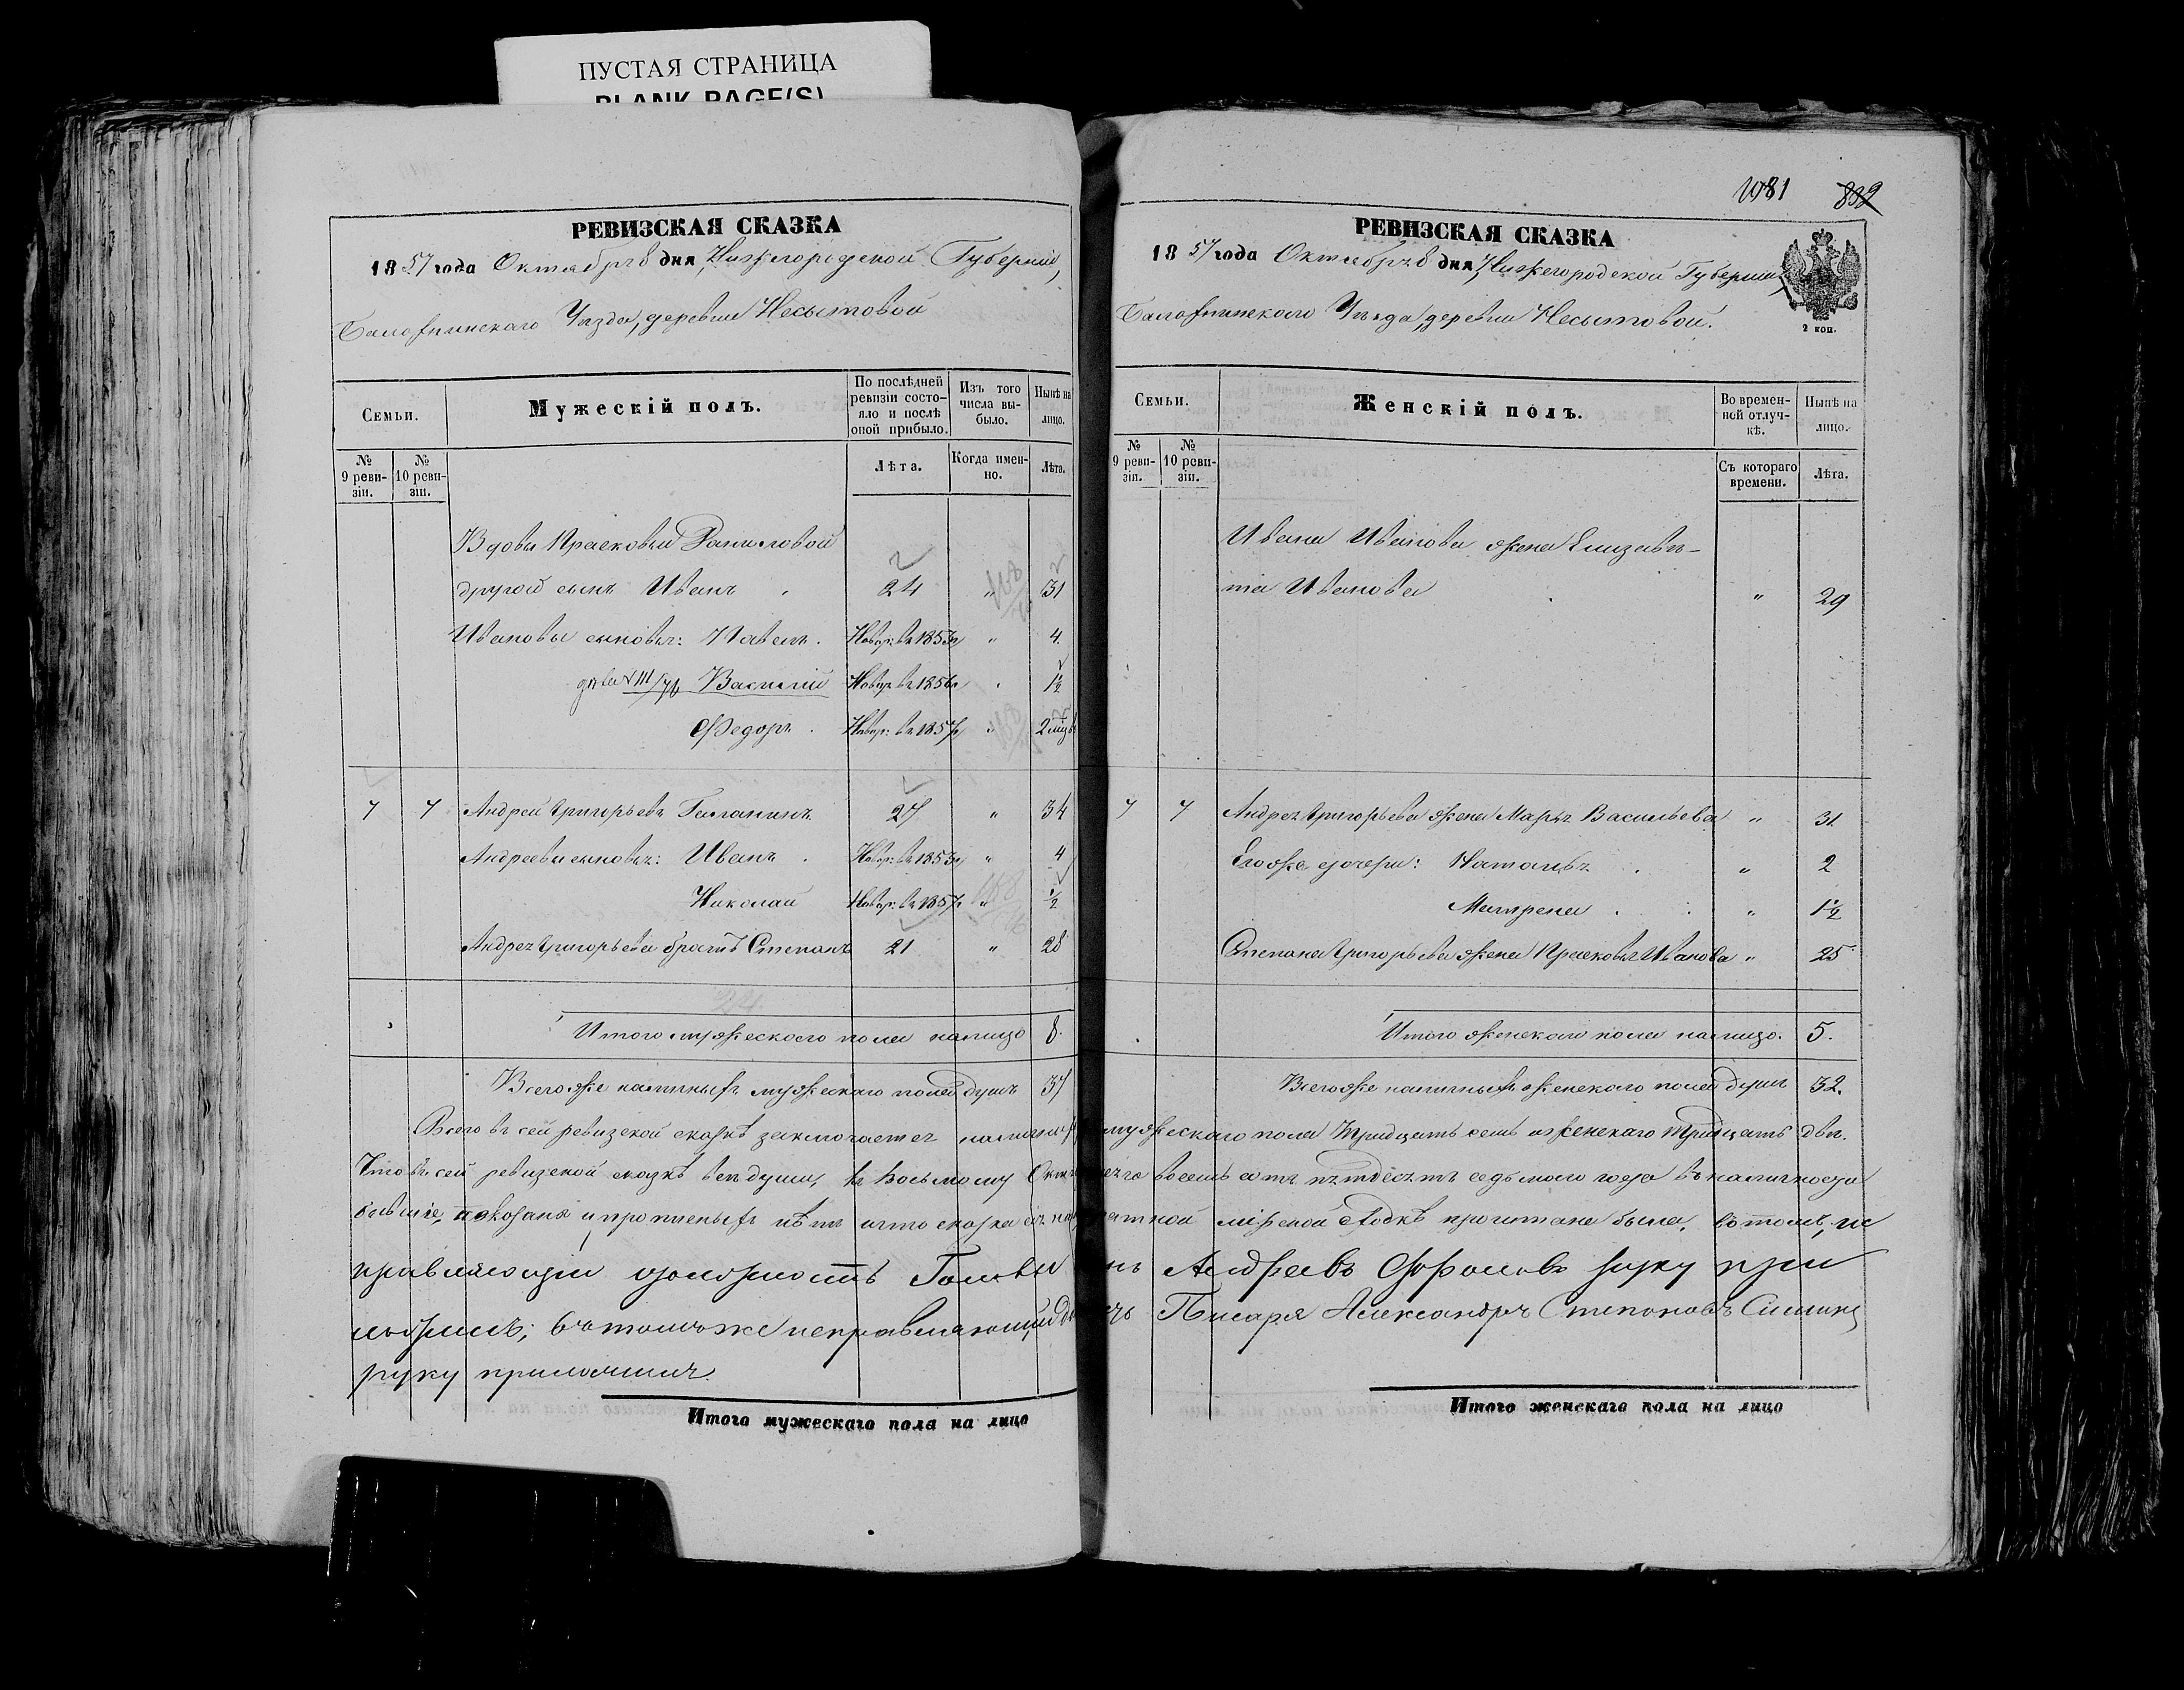 ПУСТАЯ СТРАНИЦА
BLANK PAGE(S)
РЕВИЗСКАЯ СКАЗКА
1857 года Октября 8 дня, Нижегородской Губерніи,
Балахнинскаго Уѣзда, деревни Несытовой
Семьи.
Мужескій полъ.
По послѣдней ревизіи состояло и послѣ оной прибыло.
Изъ того числа выбыло.
Нынѣ на лицо.
№ 9 ревизіи.
№ 10 ревизіи.
Лѣта.
Когда именно.
Лѣта.
Вдовы Прасковьи Даниловой
другой сынъ Иванъ 24 " 31
Ивановы сыновья: Павелъ. Новор: въ 1853 " 4.
Василій Новор: въ 1856 1½
Федоръ. Новор: въ 1857 " 2 мѣс
7 7 Андрей Григорьевъ Галанинъ 27 " 34
Андреевы сыновья: Иванъ. Новор: въ 1853 " 4
Николай Новор: въ 1857 " ½
Андрея Григорьева братъ Степанъ 21 " 28
Итого мужескаго пола налицо 8.
Всего же наличныхъ мужескаго пола душъ 37
Итого мужескаго пола на лицо
1081 832
РЕВИЗСКАЯ СКАЗКА
1857 года Октября 8 дня, Нижегородской Губерніи,
Балахнинскаго Уѣзда, деревни Несытовой.
2 коп.
Семьи.
Женскій полъ.
Во временной отлучкѣ.
Нынѣ на лицо.
№ 9 ревизіи.
№ 10 ревизіи.
Съ котораго времени.
Лѣта.
Ивана Иванова жена Елизавѣ-
та Иванова " 29
7 7 Андрея Григорьева жена Марья Васильева " 31
Егоже дочери: Наталья. " 2
Матрена. " 1½
Степана Григорьева жена Прасковья Иванова " 25
Итого женскаго пола налицо. 5.
Всего же наличныхъ женскаго пола душъ 32.
Всего въ сей ревизской сказкѣ заключается наличныхъ мужескаго пола тридцать семь и женскаго тридцать двѣ.
Что въ сей ревизской сказкѣ всѣ души, къ Восьмому Октя восемь сотъ пятдесятъ седьмого года въ наличности
бывшіе, показаны и пропиеныхъ нѣтъ и что сказка сія на мірской сходкѣ прочитана была, въ томъ, ис
правляющій должность Головы Андреевъ руку при
ложилъ; Въ томъ же исправляющій Писаря Александръ Степановъ
руку приложилъ
Итого женскаго пола на лицо